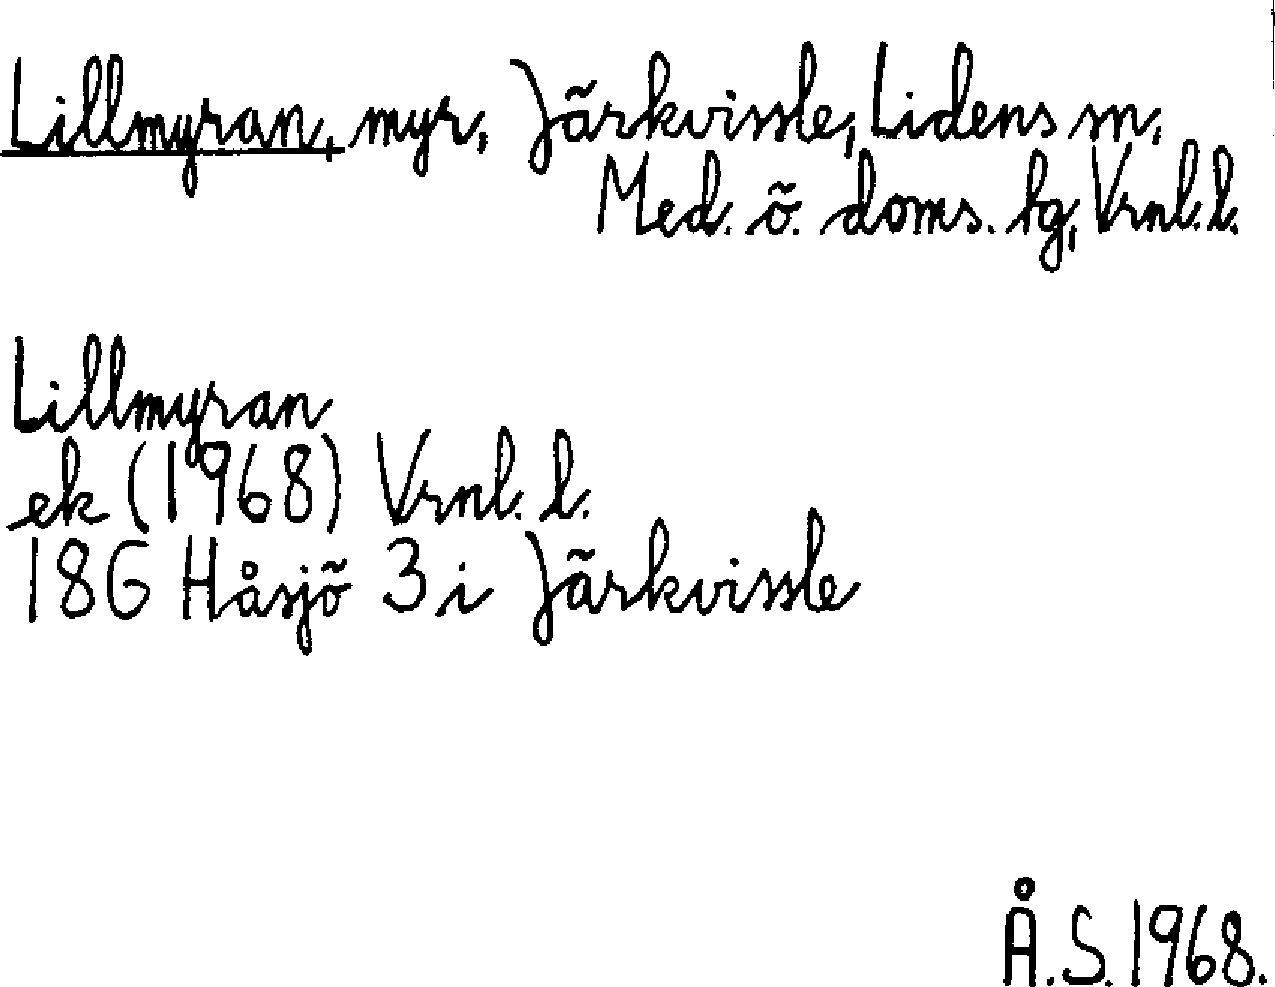 Lillmyran, myr, Järkvissle, Lidens sn,
Med. ö. doms. hg, Vrnl. l.
Lillmyran
ek (1968) Vrnl. l.
18G Håsjö 3 i Järkvissle
Å.S. 1968.